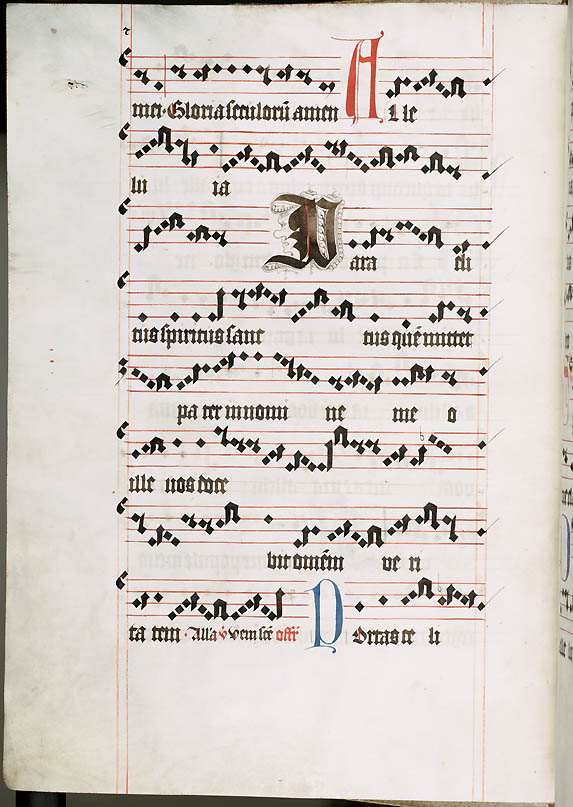 mei · Gloria seculorū amen Alle
lu ia
Para cli
tus spiritus sanc tus quē mittet
pa ter in nomi ne me o
ille vos doce
bit omēm ve ri
ta tem · Alla ℣ Veni scē offr̄ Portas ce li